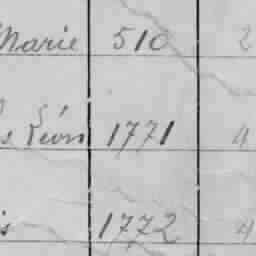 Marie 510 2
s Léon 1771 4
is 1772 4